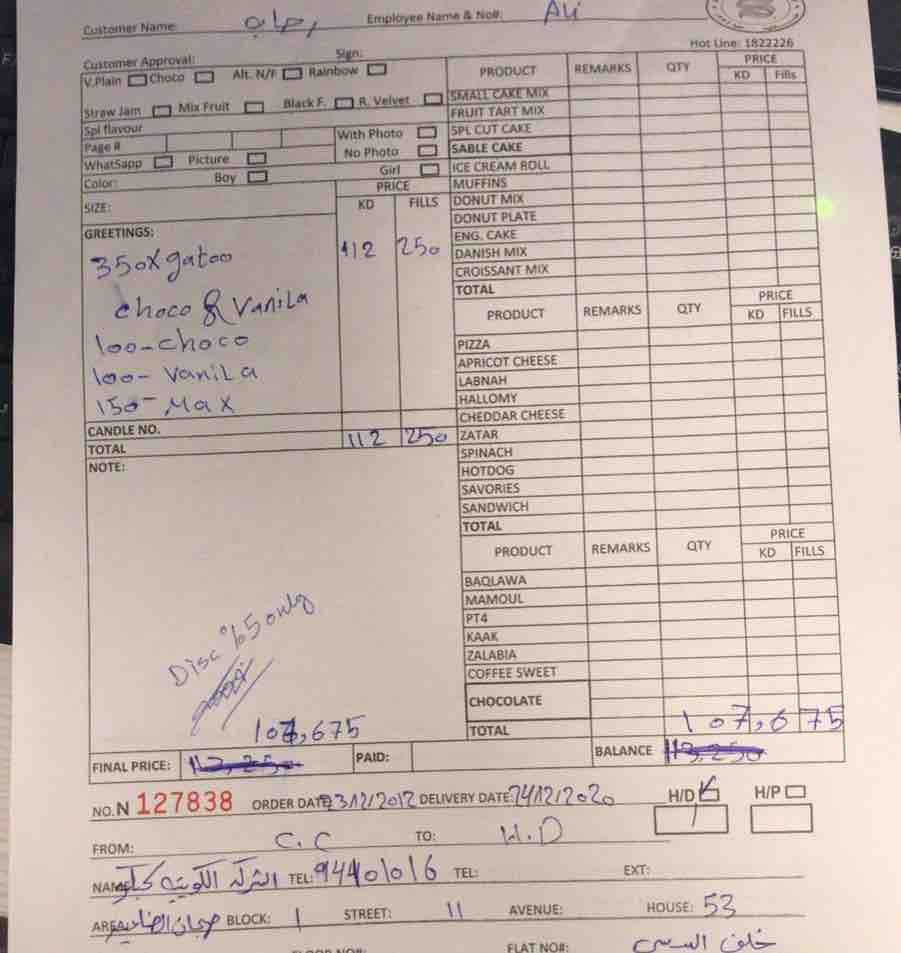 Customer Name: رحاب Employee Name & No#: Ali
Hot Line: 1822226
Customer Approval: Sign:
V.Plain Choco Alt. N/F Rainbow
Straw Jam Mix Fruit Black F. R. Velvet
Spl flavour
Page # With Photo
WhatSapp Picture No Photo
Color: Boy Girl
SIZE: PRICE
KD FILLS
GREETINGS:
350X gatoo 112 250
choco & Vanila
100-choco
100- VaniLa
150- Max
CANDLE NO.
TOTAL 112 250
NOTE:
Disc %5 only
107,675
FINAL PRICE: PAID:
PRODUCT REMARKS QTY PRICE
KD Fills
SMALL CAKE MIX
FRUIT TART MIX
SPL CUT CAKE
SABLE CAKE
ICE CREAM ROLL
MUFFINS
DONUT MIX
DONUT PLATE
ENG. CAKE
DANISH MIX
CROISSANT MIX
TOTAL
PRODUCT REMARKS QTY PRICE
KD FILLS
PIZZA
APRICOT CHEESE
LABNAH
HALLOMY
CHEDDAR CHEESE
ZATAR
SPINACH
HOTDOG
SAVORIES
SANDWICH
TOTAL
PRODUCT REMARKS QTY PRICE
KD FILLS
BAQLAWA
MAMOUL
PT4
KAAK
ZALABIA
COFFEE SWEET
CHOCOLATE
TOTAL 107,675
BALANCE 113,250
NO. N 127838 ORDER DATE DELIVERY DATE: 24/12/2020 H/D H/P
FROM: C.C TO: H.D
NAME الشركة الكويتية TEL: 94401016 TEL: EXT:
AREA BLOCK: 1 STREET: 11 AVENUE: HOUSE: 53
FLOOR NO#: FLAT NO#: خلف